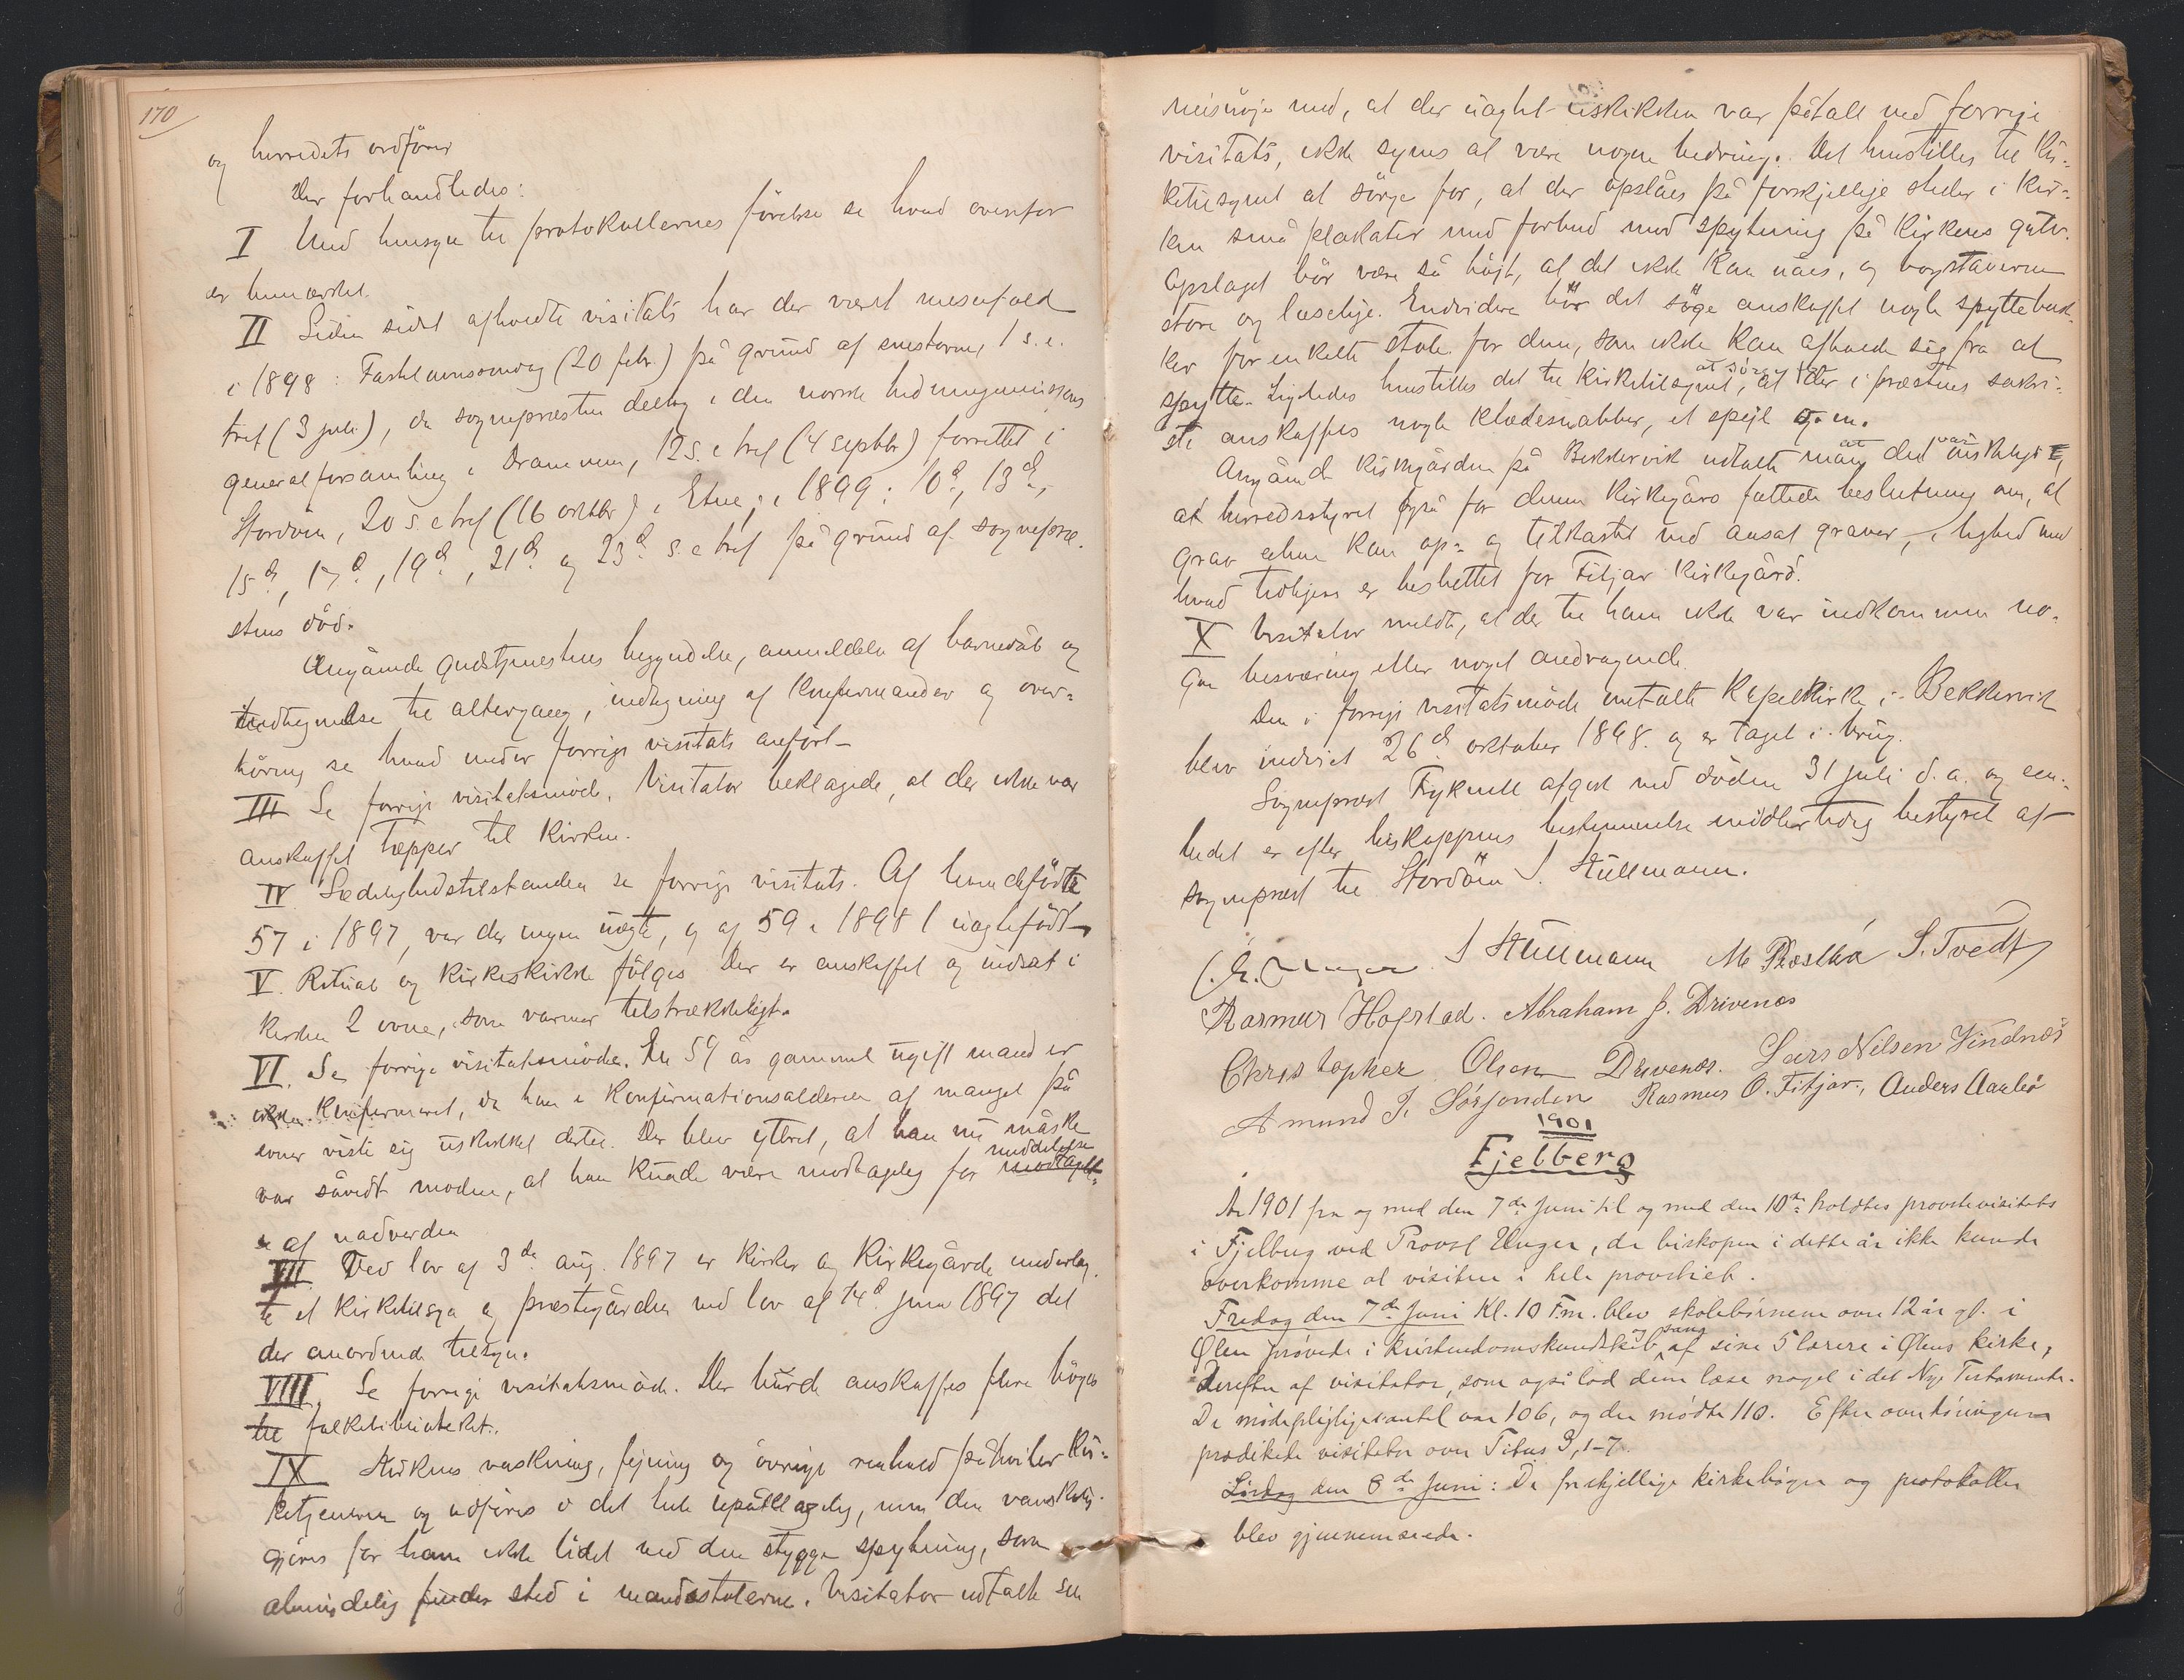 170
og herredets ordfører
Der forhandledes:
I Med hensyn til protokollernes førelse se hvad ovenfor
er bemærket.
II Siden sidst afholdte visitats har der været messefald
i 1898: Fastelavnsøndag (20 febr.) på grund af snestorm, 1 s. e.
tref (3 juli), da sognepræsten deltog i den norske hedningemissions
generalforsamling i Drammen, 12 s. e tref (4 septbr) forrettet i
Stordøen, 20 s. e tref (16 oktbr) i Etne; i 1899: 10d, 13d,
15d, 17d, 19d, 21d og 23d s. e tref på grund af sognepræ-
stens död.
Angående gudstjenestens begyndelse, anmeldelse af barnedåb og
indtegnelse til altergang, indtegning af konfirmander og over-
höring se hvad under forrige visitats anført-
III Se forrige visitatsmøde. Visitator beklagede, at der ikke var
anskaffet tepper til kirken.
IV Sædelighedstilstanden se forrige visitats. Af hjemdefödte
57 i 1897 var der ingen uegte, og af 59 i 1898 1 uegtefödt-
V. Ritual og kirkeskikke fölges. Der er anskaffet og indsat i
kirken 2 ovne, som varmer tilstrækkeligt.
VI. Se forrige visitatsmøde. En 59 år gammel ugift mand er
ikke konfirmeret, da han i konfirmationsalderen af mangel på
evner viste sig uskikket dertil. Der blev ytret, at han nu måske
var såvidt moden, at han kunde være modtagelig for meddelelse modtagel-
e af nadverden
VII Ved lov af 3de aug. 1897 er kirker og kirkegårde underlag-
te et kirketilsyn og præstegården ved lov af 14d juni 1897 det
der anordnede tilsyn.
VIII. Se forrige visitatsmøde. Der burde anskaffes flere böger
til folkebibliotheket.
IX Kirkens vaskning, fejning og övrige renhold påhviler kir-
ketjeneren og udføres i det hele upåklagelig, men den vanskelig-
gjøres for ham ikke lidet ved den stygge spytning, som
almindelig finder sted i mandsstolerne. Visitator udtalte sin
misnöje med, at der uagtet uskikken var påtalt ved forrige
visitats, ikke synes at være nogen bedring. Det henstilles til kir-
ketilsynet at sörge for, at der opslåes på forskjellige steder i kir-
ken små plakater med forbud mod spytning på kirkens gulv.
Opslaget bör være så höjt, at det ikke kan nåes, og bogstaverne
store og læselige. Endvidere bör det söge anskaffet nogle spyttebak-
ker for enkelte stole for dem, som ikke kan afholde sig fra at
spytte. Ligeledes henstilles det til kirketilsynet, at sörge for at der i præstens sakri-
sti anskaffes nogle klædesnabber, et spejl o. m.
Angående kirkegården på Bekkervik udtalte man at det var ønskeligt,
at herredsstyret også for denne kirkegård fattede beslutning om, at
grav alene kan op- og tilkastes ved ansat graver, i lighed med
hvad tidligere er besluttet for Fitjar kirkegård.
X Visitator meldte, at der til ham ikke var indkommen no-
gen besværing eller noget andragende.
Den i forrige visitatsmøde omtalte kapelkirke i Bekkervik
blev indviet 26d oktober 1898 og er taget i brug.
Sognepræst Tyknell afgik ved döden 31 juli d. a. og em-
bedet er efter biskoppens bestemmelse midlertidig bestyret af
sognepræst til Stordöen J. Küllmann.
J Küllmann M S. Tvedt
Rasmus Hogstad. Abraham J. Drivenes
Christopher Olsen Drivenes. Lars Nilsen Vindnæs
Amund I. Sørfonden Rasmus O. Fitjar., Anders Aarbø
1901
Fjelberg
År 1901 fra og med den 7de Juni til og med den 10de holdtes provstevisitats
i Fjelberg ved Provst Unger, da biskopen i dette år ikke kunde
overkomme at visitere i hele provstiet.
Fredag den 7de Juni Kl. 10 Fm. blev skolebörnene over 12 år gl. i
Ølen prøvede i kristendomskundskab og sang af sine 5 lærere i Ølens kirke,
derefter af visitator, som også lod dem læse noget i det Nye Testamente.
De mødepligtiges antal var 106, og der mødte 110. Efter overhøringen
prædikede visitator over Titus 3, 1-7.
Lördag den 8de Juni: De forskjellige kirkebøger og protokoller
blev gjennemseede.